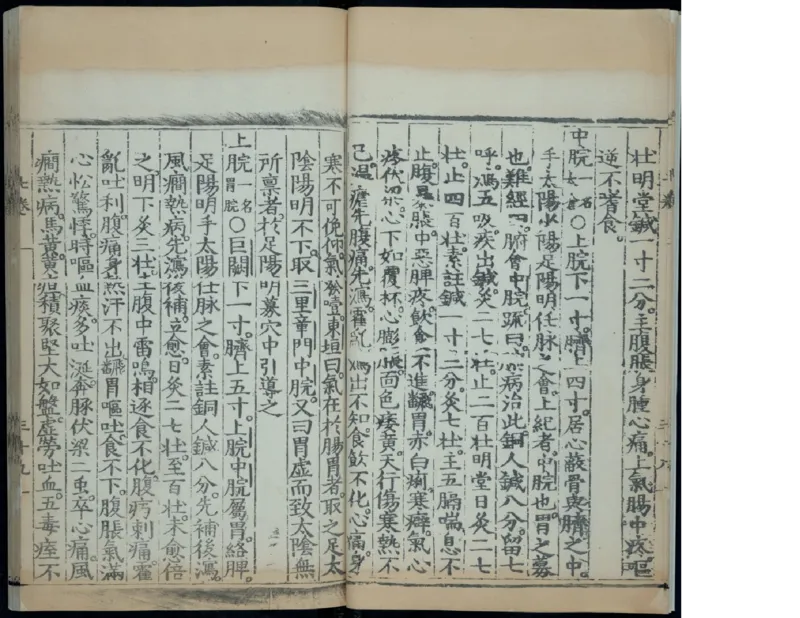 壯明堂鍼一寸二分。主腹脹身腫心痛。上氣腸中疼嘔
逆不嗜食。
中脘一名太倉○上脘下一寸。臍上四寸居心蔽骨與臍之中。
手太陽少陽足陽明任脉之會。上紀者。中脘也胃之募
也難經曰。腑會中脘疏曰。腑病治此銅人鍼八分。留七
呼。瀉五吸。疾出鍼。灸二七壯止二百壯明堂日灸二七
壯。止四百壯。素註鍼一寸二分。灸七壯。主五膈喘息不
止腹暴脹。中惡脾疼飲食不進。飜胃。赤白痢。寒癖。氣心
疼伏梁。心下如覆杯。心膨脹。面色痿黃。天行傷寒熱不
已。溫瘧先腹痛先瀉。霍亂瀉出不知。食飲不化。心痛。身
寒不可俛仰。氣發噎。東垣曰。氣在於腸胃者。取之足太
陰陽明不下。取三里章門中脘。又曰胃虛而致太陰無
所稟者。於足陽明募穴中引導之
上脘一名胃脘○巨闕下一寸。臍上五寸。上脘中脘屬胃。絡脾。
足陽明手太陽任脉之會。素註銅人鍼八分。先補後瀉。
風癇熱病。先瀉後補。立愈。日灸二七壯。至百壯。未愈倍
之。明下灸三壯。主腹中雷鳴。相逐。食不化。腹㽲刺痛霍
亂吐利。腹痛。身熱汗不出飜胃嘔吐。食不下。腹脹氣滿
心忪驚悸時嘔血。痰多吐涎。奔豚伏梁二䖝。卒心痛。風
癇熱病。馬黃黃疸積聚堅大如盤。虛勞吐血。五毒痓不
七卷 三十九